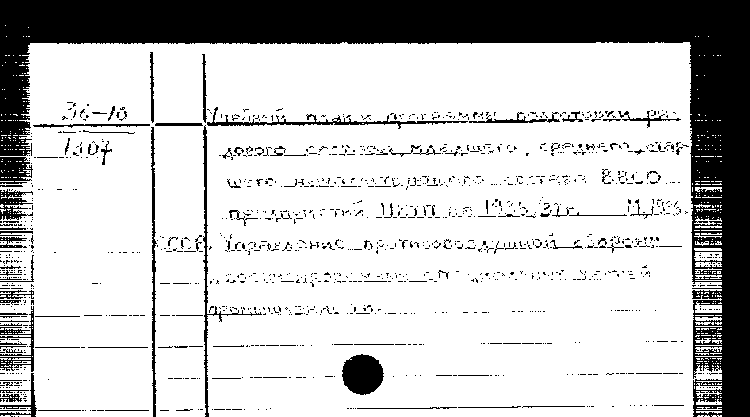 36-10
1307
Учебный план и программы подготовки ря-
дового состава, младшего, среднего, стар-
шего начальствующего состава ВВСО
предприятий на 1936/37 г. М, 1936.
СССР. Управление противовоздушной обороны
специальных частей
промышленности.